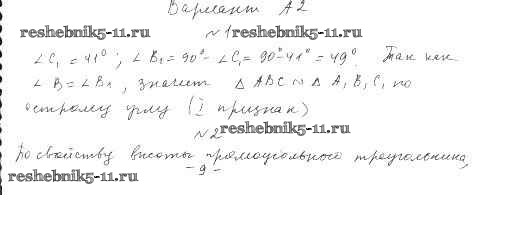 Вариант А2
reshebnik5-11.ru
№1 reshebnik5-11.ru
∠C₁ = 41°; ∠B₁ = 90° - ∠C₁ = 90° - 41° = 49°. Так как
∠B = ∠B₁, значит △ABC ~ △A₁B₁C₁ по
острому углу (I признак)
№2 reshebnik5-11.ru
По свойству высоты прямоугольного треугольника,
reshebnik5-11.ru
- 9 -